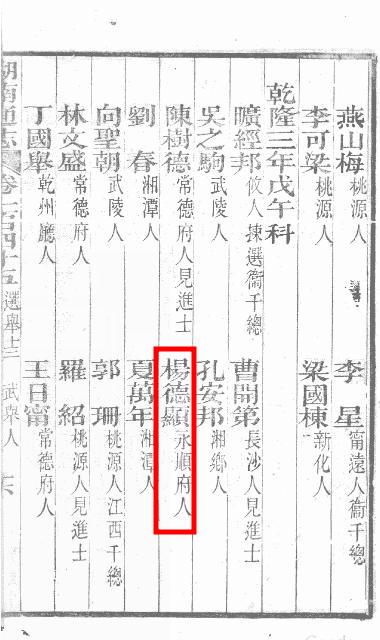 燕山梅桃源人　李星甯遠人衞千總
李可梁桃源人　梁國棟新化人
乾隆三年戊午科
曠經邦攸人揀選衞千總　曹開第長沙人見進士
吳之駒武陵人　孔安邦湘鄉人
陳樹德常德府人見進士　楊德顯永順府人
劉春湘潭人　夏萬年湘潭人
向聖朝武陵人　郭珊桃源人江西千總
林文盛常德府人　羅紹桃源人見進士
丁國舉乾州廳人　王日甯常德府人
湖南通志　卷一百四十五　選舉十三　武舉人